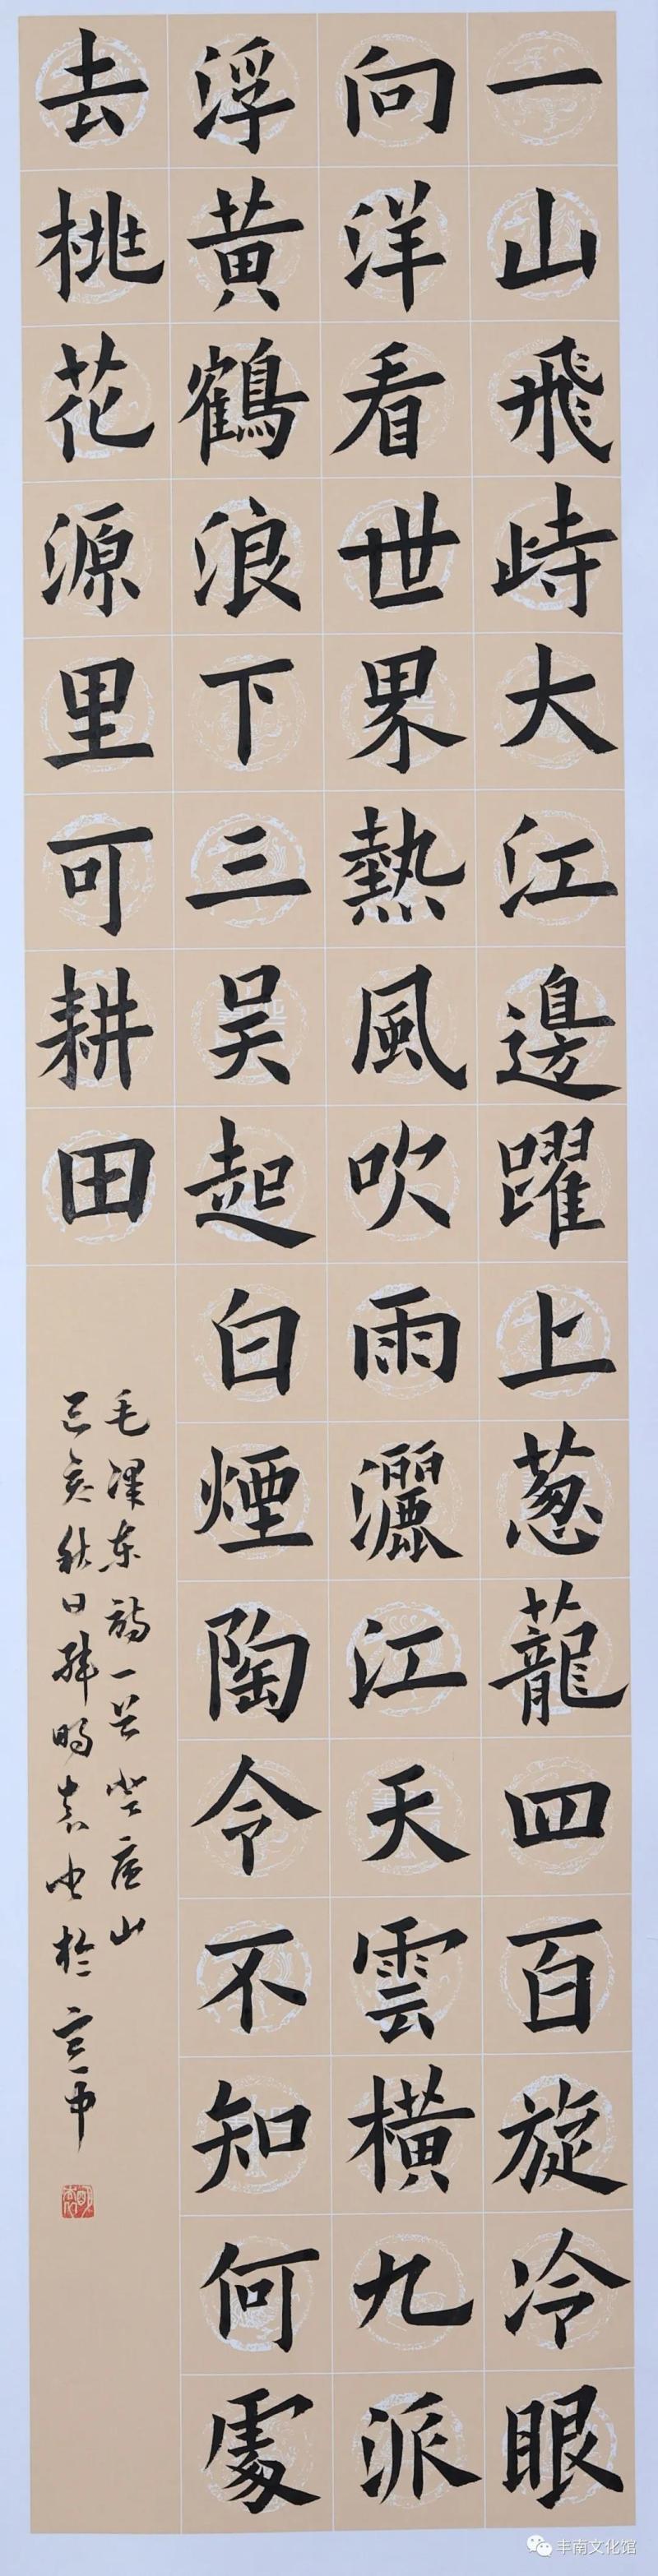 一山飛峙大江邊躍上葱蘢四百旋冷眼
向洋看世界熱風吹雨灑江天雲橫九派
浮黃鶴浪下三吴起白煙陶令不知何處
去桃花源里可耕田
毛澤东詩一首登庐山
己亥秋日
丰南文化馆